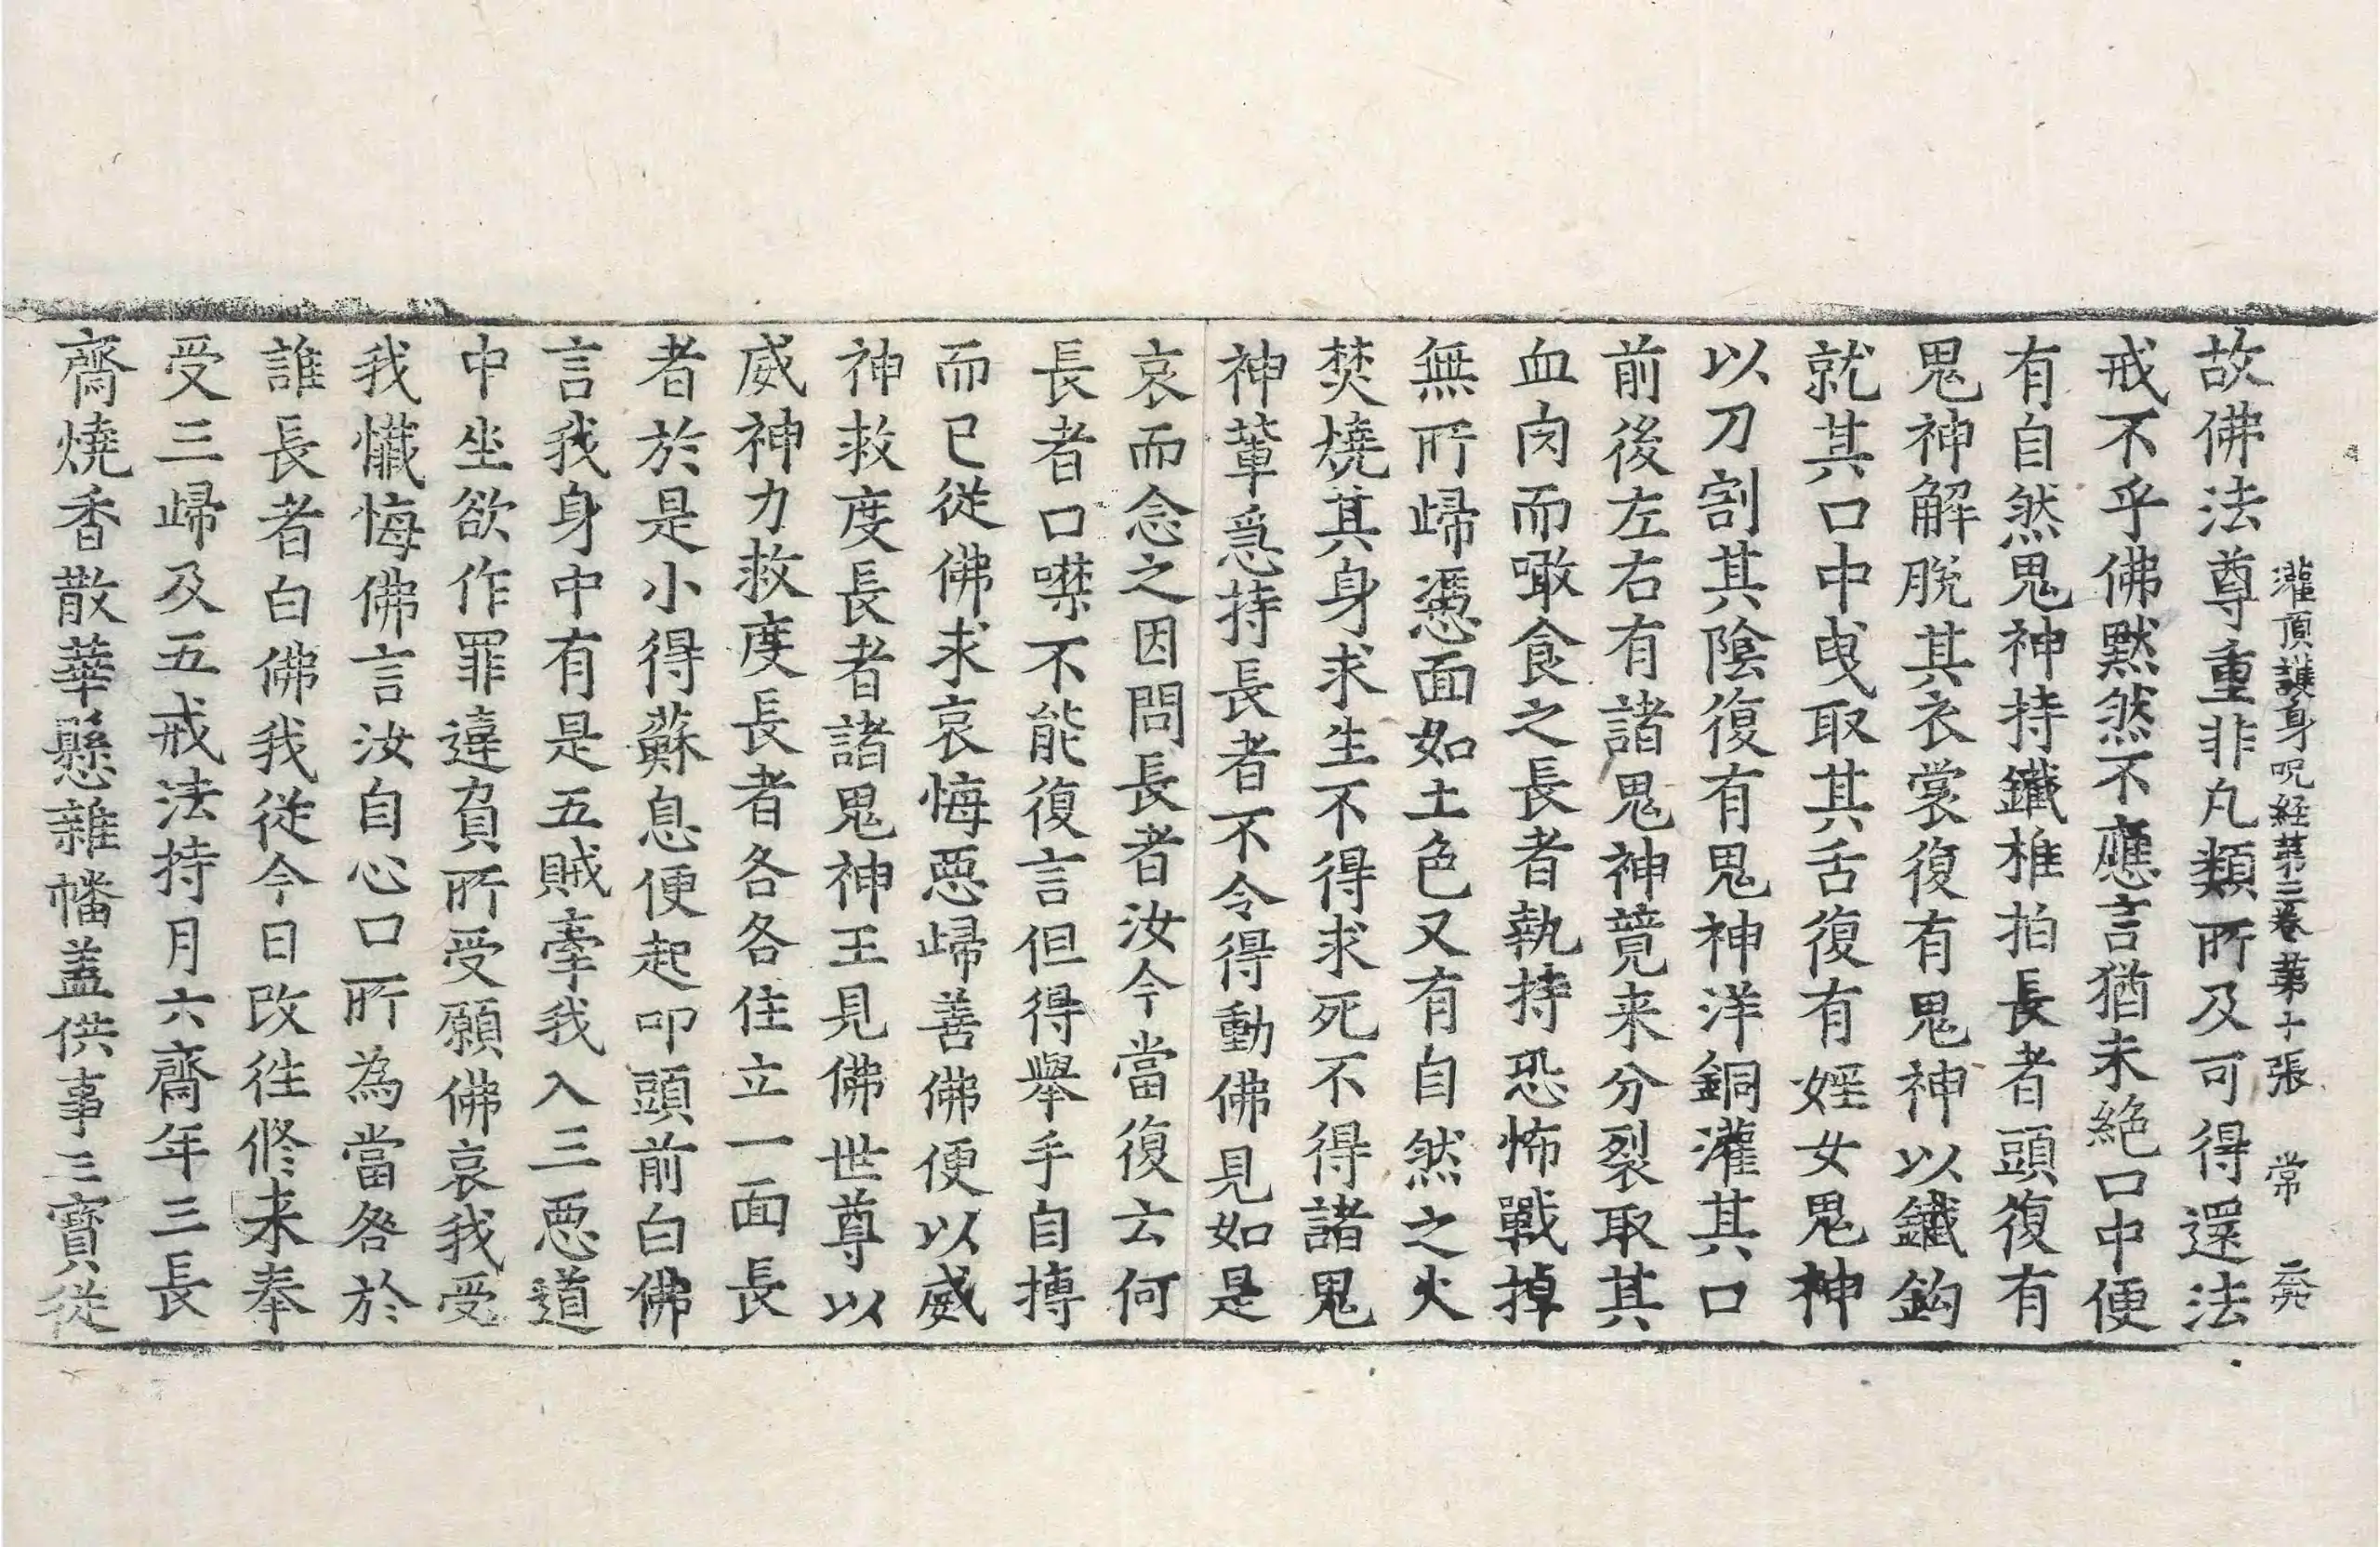 灌頂護身呪経苐三卷 苐十張 常
故佛法尊重非凡類所及可得還法
戒不乎佛黙然不應言猶未絶口中便
有自然鬼神持鐵椎拍長者頭復有
鬼神解脱其衣裳復有鬼神以鐵鈎
就其口中曳取其舌復有婬女鬼神
以刀割其陰復有鬼神洋銅灌其口
前後左右有諸鬼神競来分裂取其
血肉而噉食之長者執持恐怖戰掉
無所歸慿面如土色又有自然之火
焚燒其身求生不得求死不得諸鬼
神軰急持長者不令得動佛見如是
哀而念之因問長者汝今當復云何
長者口噤不能復言但得舉手自搏
而已從佛求哀悔惡歸善佛便以威
神救度長者諸鬼神王見佛世尊以
威神力救度長者各各住立一面長
者於是小得蘇息便起叩頭前白佛
言我身中有是五賊牽我入三惡道
中坐欲作罪違負所受願佛哀我受
我懺悔佛言汝自心口所為當咎於
誰長者白佛我從今日改徃修来奉
受三歸及五戒法持月六齋年三長
齋燒香散華懸雜幡盖供事三寳從